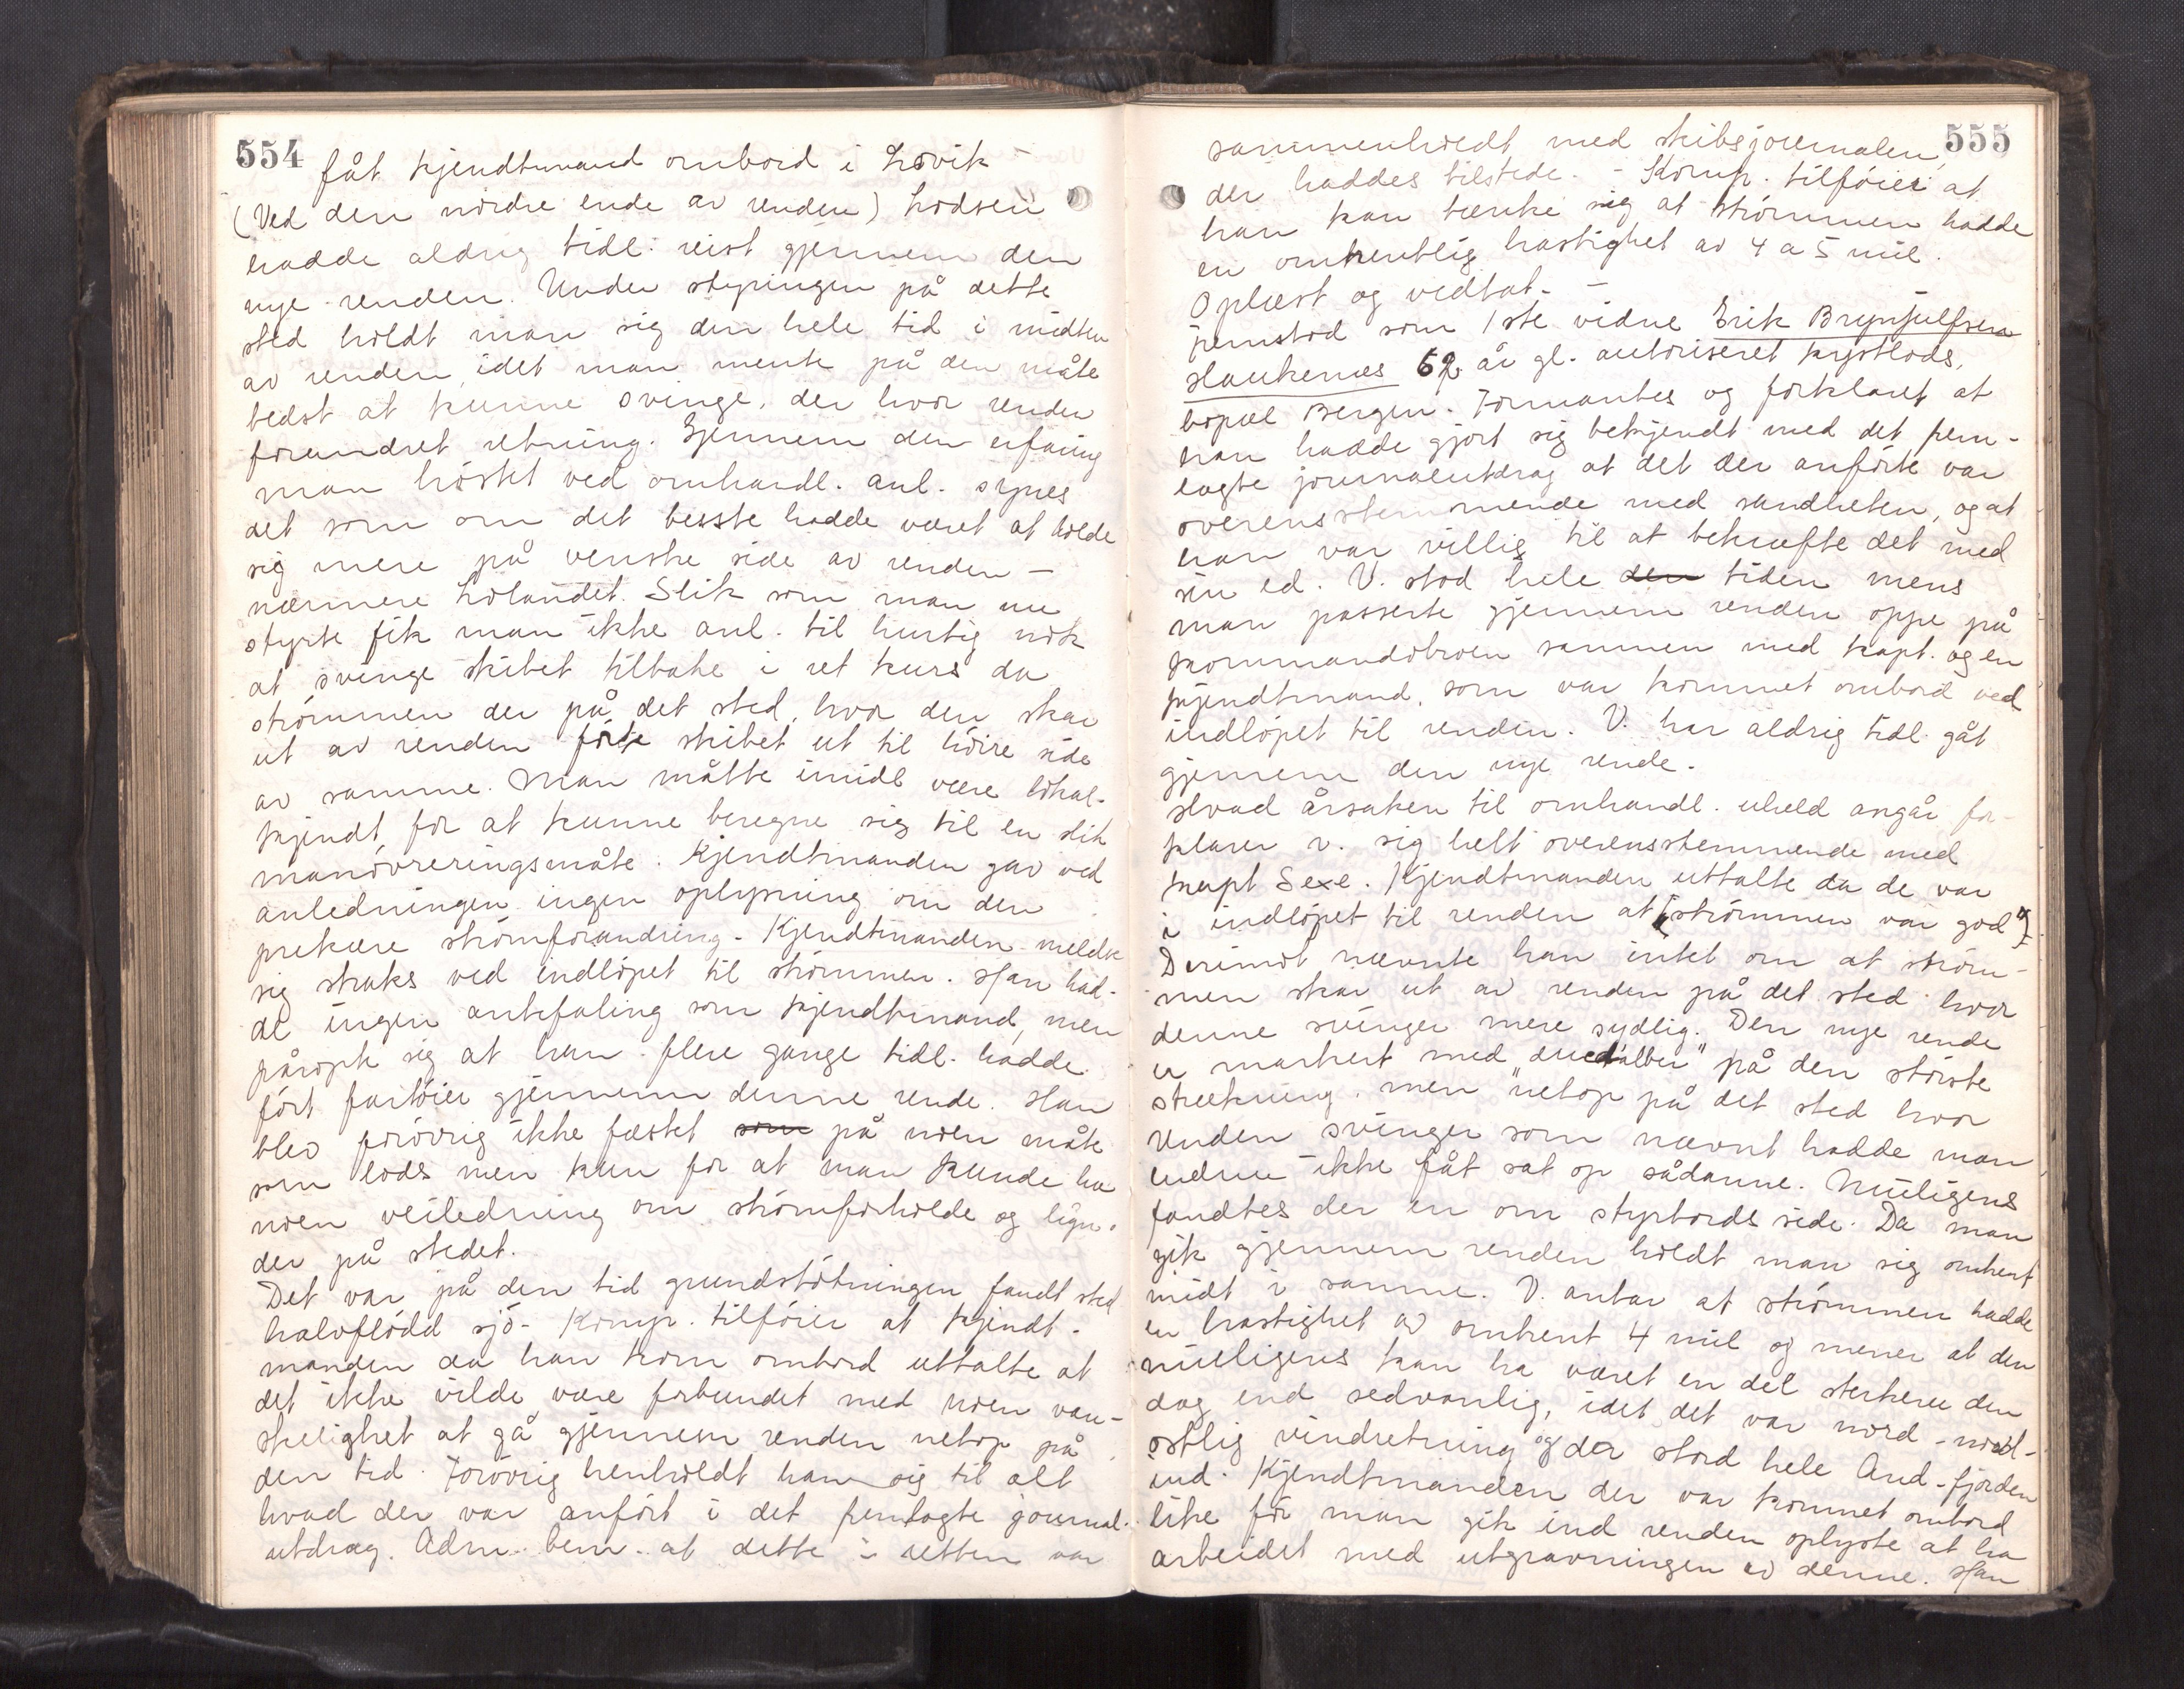 554
fåt kjendtmand ombord i Lovik -
(Ved den nordre ende av renden) Lodsen
hadde aldrig tidl. reist gjennem den
nye renden. Under styringen på dette
sted holdt man sig den hele tid i midten
av renden, idet man mente på den måte
bedst at kunne svinge, der hvor renden
forandret retning. Gjennem den erfaring
man høstet ved omhandl. anl. synes
det som om det beste hadde været at holde
sig mere på venstre side av renden -
nærmere Lolandet. Slik som man nu
styrte fik man ikke anl. til hurtig nok
at svinge skibet tilbake i ret kurs da
strømmen der på det sted, hvor den skar
ut av renden førte skibet ut til høire side
av samme. Man måtte imidl være lokal-
kjendt for at kunne beregne sig til en slik
manøvreringsmåte. Kjendtmanden gav ved
anledningen ingen oplysning om den
prekære strømforandring. Kjendtmanden meldte
sig straks ved indløpet til strømmen. Han had-
de ingen anbefaling som kjendtmand, men
påropte sig at han flere gange tidl. hadde
ført fartøier gjennem denne rende. Han
blev forøvrig ikke fæstet som på noen måte
som lods men kun for at man kunde ha
noen veiledning om strømforholde og lign.
der på stedet.
Det var på den tid grundstøtningen fandt sted
halvflødd sjø. Komp. tilføier at kjendt-
manden da han kom ombord uttalte at
det ikke vilde være forbundet med noen van-
skelighet at gå gjennem renden netop på
den tid. Forøvrig henholdt han sig til alt
hvad der var anført i det fremlagte journal-
utdrag. Adm. bem. at dette i retten var
555
sammenholdt med skibsjournalen,
der haddes tilstede. - Komp. tilføier at
han kan tænke sig at strømmen hadde
en omtrentlig hastighet av 4 a 5 mil.
Oplæst og vedtat. -
Fremstod som 1ste vidne Erik Brynjulfsen
Haukenæs 62 år gl. autoriseret kystlods,
bopæl Bergen. Formantes og forklaret at
han hadde gjort sig bekjendt med det frem-
lagte journalutdrag at det der anførte var
overensstemmende med sandheten, og at
han var villig til at bekræfte det med
sin ed. V. stod hele den tiden mens
man passerte gjennem renden oppe på
kommandobroen sammen med kapt. og en
kjendtmand, som var kommet ombord ved
indløpet til renden. V. har aldrig tidl. gåt
gjennem den nye rende.
Hvad årsaken til omhandl. uheld angår for-
klarer v. sig helt overensstemmende med
kapt Sexe. Kjendtmanden uttalte da de var
i indløpet til renden at "strømmen var god"
Derimot nævnte han intet om at strøm-
men skar ut av renden på det sted hvor
denne svinger mere sydlig. Den nye rende
er markert med "ducdalber" på den største
strækning. men netop på det sted hvor
renden svinger som nævnt hadde man
endnu ikke fåt sat op sådanne. Muligens
fandtes der en om styrbords side. Da man
gik gjennem renden holdt man sig omtrent
midt i samme. V. antar at strømmen hadde
en hastighet av omtrent 4 mil og mener at den
muligens kan ha været en del sterkere den
dag end sedvanlig, idet det var nord-nord-
østlig vindretning og der stod hele And-fjorden
ind. Kjendtmanden der var kommet ombord
like før man gik ind renden oplyste at ha
arbeidet med utgravningen av denne. Han